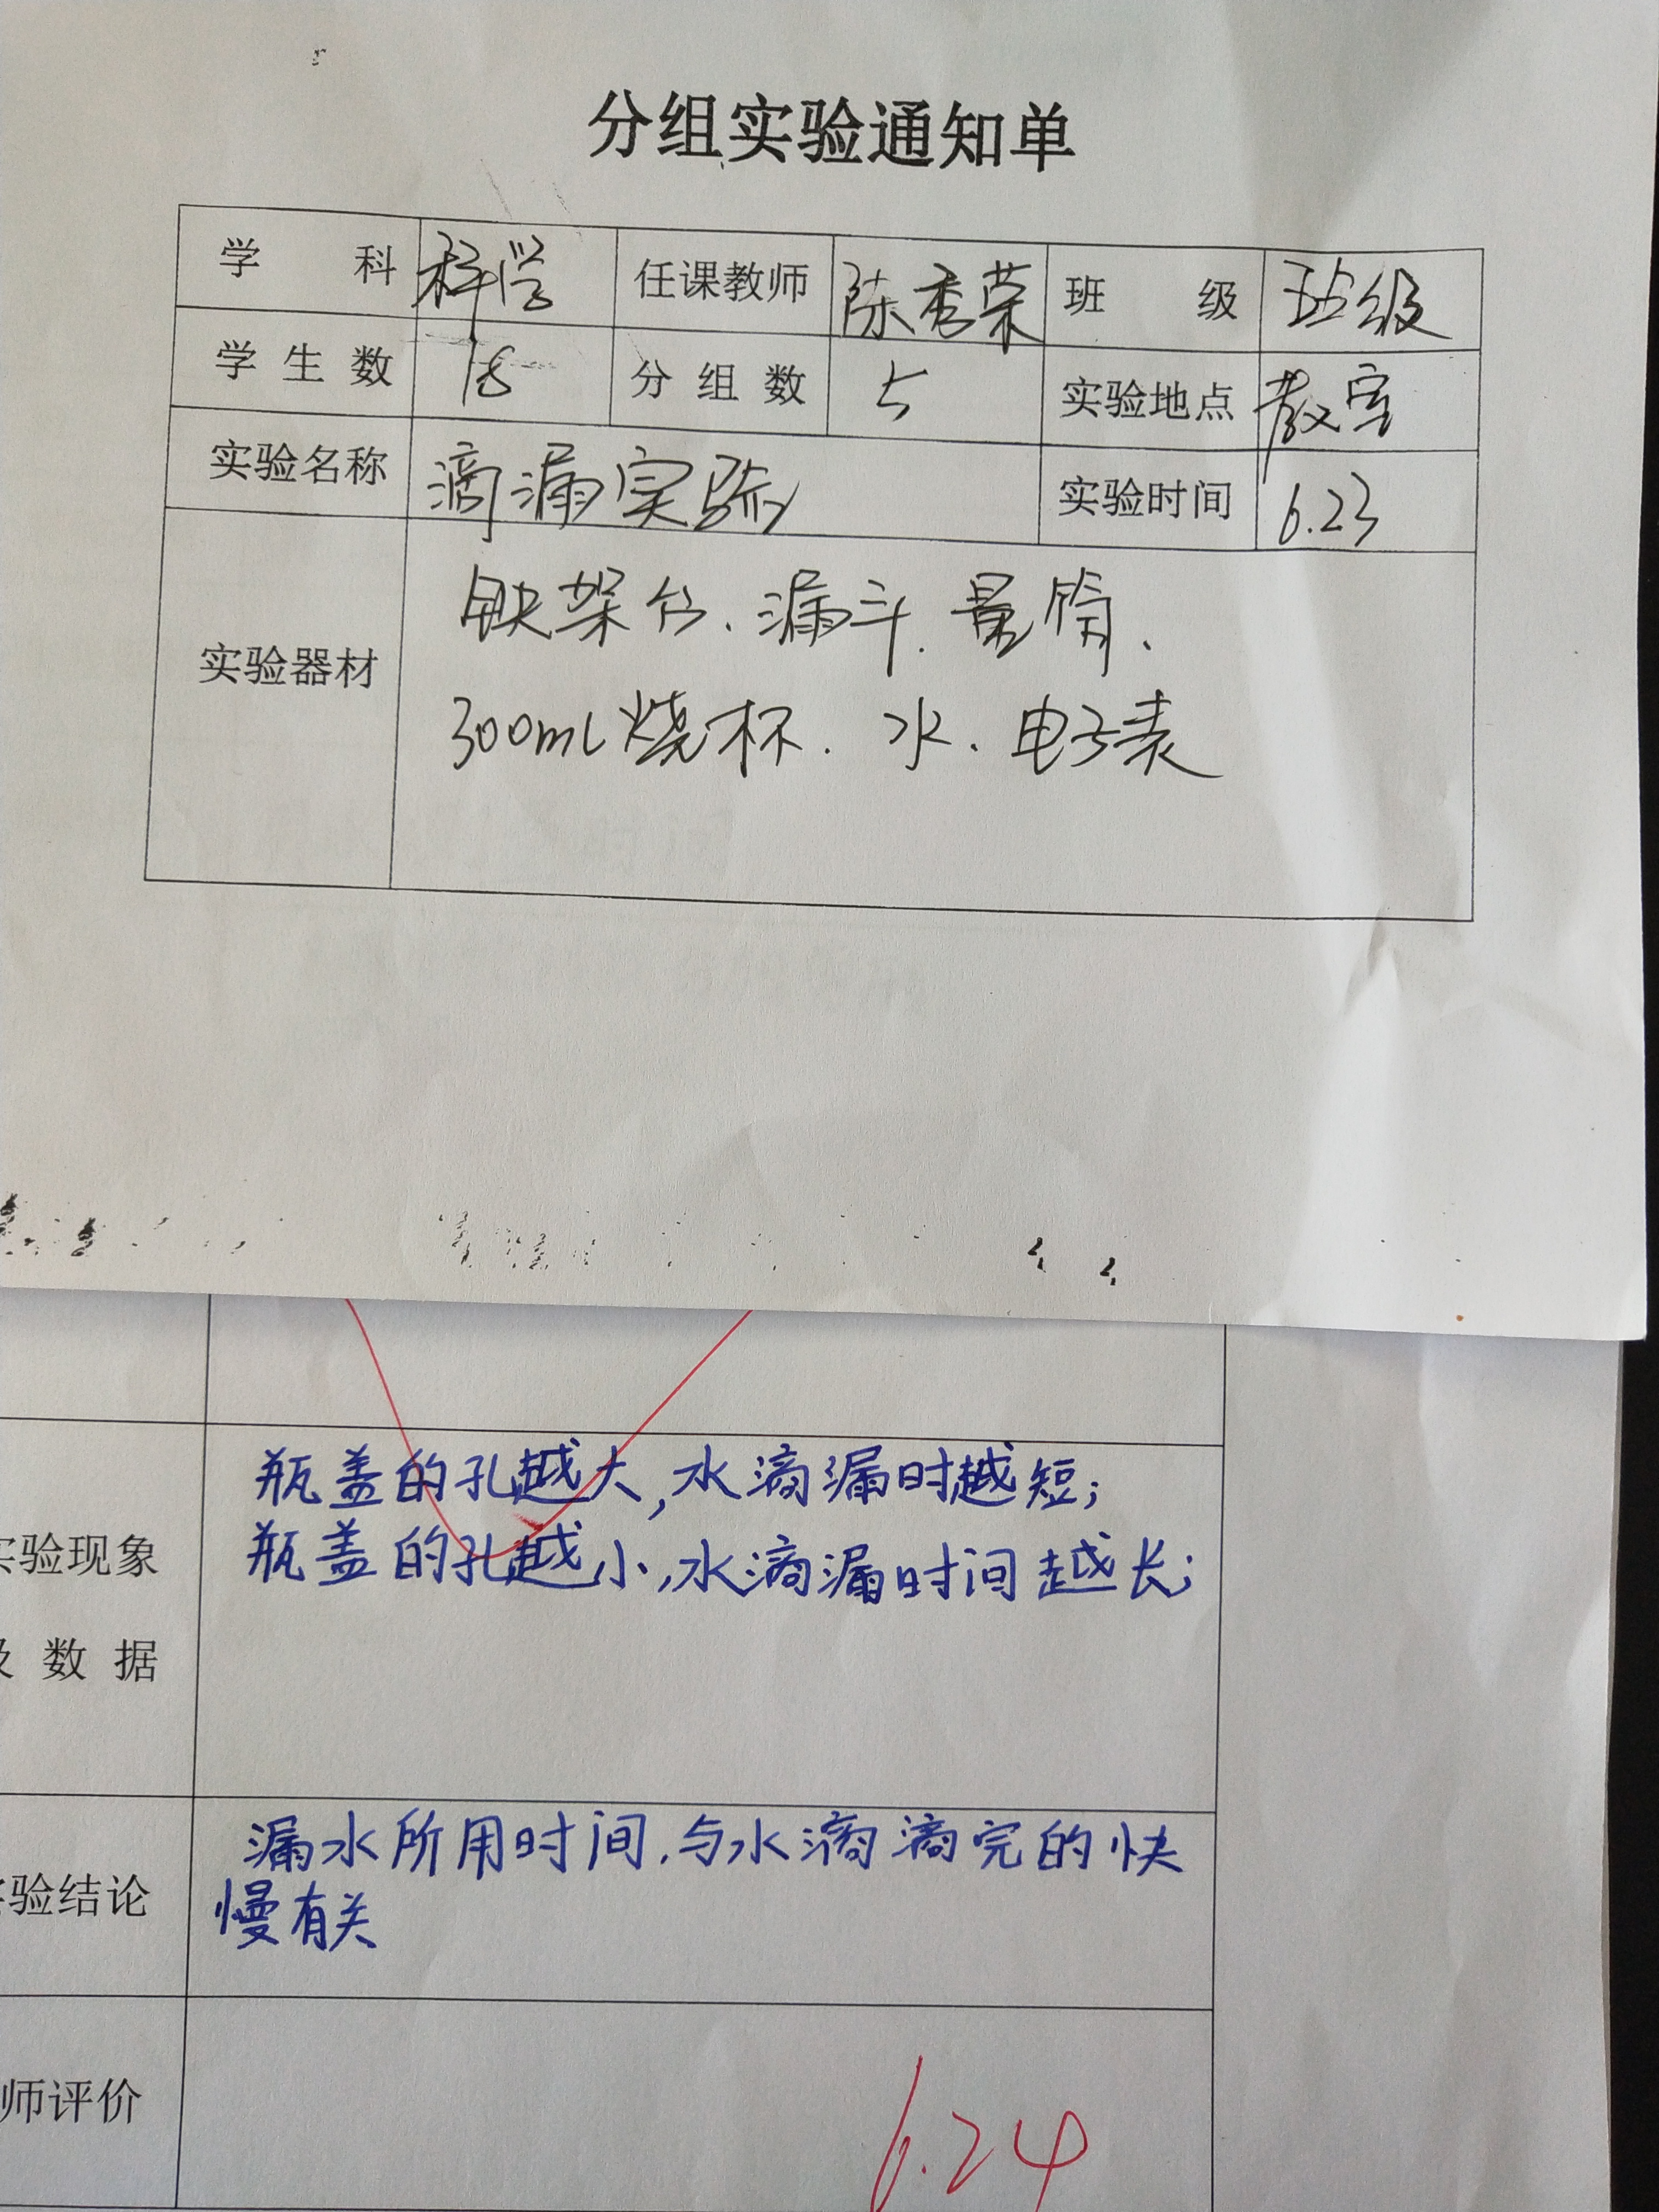 分组实验通知单
学科 科学 任课教师 陈秀荣 班级 班级
学生数 18 分组数 5 实验地点 教室
实验名称 滴漏实验 实验时间 6.23
实验器材 铁架台、漏斗、量筒、
300mL烧杯、水、电子表
瓶盖的孔越大,水滴漏时越短;
瓶盖的孔越小,水滴漏时间越长;
实验现象
及数据
漏水所用时间,与水滴滴完的快
慢有关
实验结论
师评价
6.24